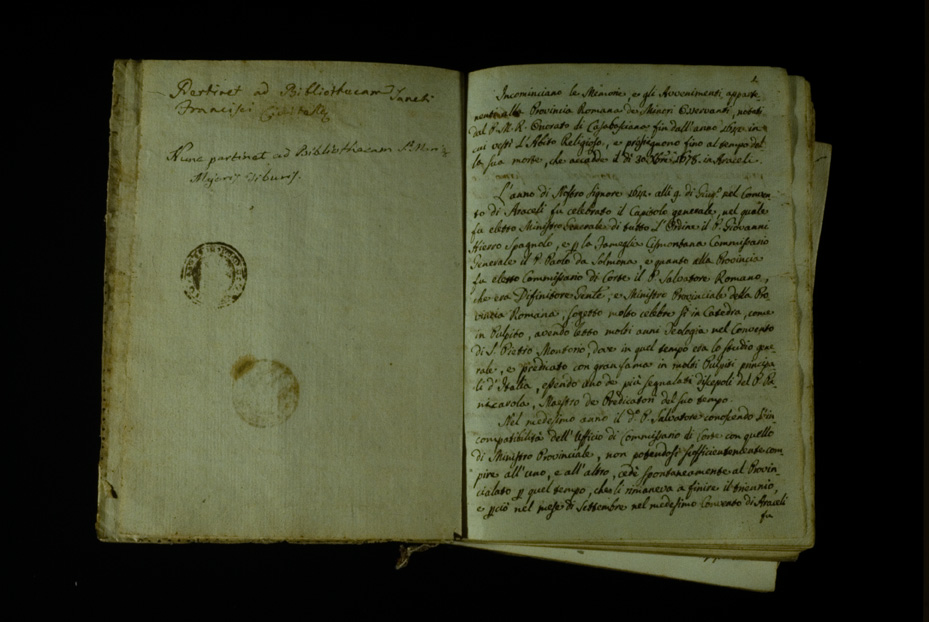 Pertinet ad Bibliothecam Sancti
Francisci
Nunc pertinet ad Bibliothecam S. Mariæ
Majoris Tiburis.
Incominciano le Memorie, e gli Avvenimenti apparte-
nenti alla Provincia Romana de Minori Osservanti, notati
dal P. M. R. Onorato di Casabasciana fin dall'anno in
cui vestì l'Abito Religioso, e proseguono fino al tempo del
la sua morte, che accadde il dì 30. 1678. in Araceli.
L'anno di Nostro Signore alli 9. di Giug.º nel Conven-
to di Araceli fu celebrato il Capitolo generale, nel quale
fu eletto Ministro Generale di tutto l'Ordine il P. Giovanni
Hierro Spagnolo, e p la Fameglia Cismontana Commissario
Generale il P. Paolo da Solmona, e quanto alla Provincia
fu eletto Commissario di Corte il P. Salvatore Romano,
che era Difinitore Gen̄le; e Ministro Provinciale della Pro
vincia Romana, sogetto molto celebre sì in Catedra, come
in Pulpito, avendo letto molti anni Teologia nel Convento
di S. Pietro Montorio, dove in quel tempo era lo studio gene-
rale, e predicato con gran fama in molti Pulpiti principa-
li d'Italia, essendo uno de più segnalati discepoli del P. Pa-
nicarola, Maestro de Predicatori del suo tempo.
Nel medesimo anno il d.º P. Salvatore conoscendo l'in-
compatibilità dell'Uffizio di Commissario di Corte con quello
di Ministro Provinciale, non potendosi sufficientemente com-
pire all'uno, e all'altro, cedè spontaneamente al Provin-
cialato p quel tempo, che li rimaneva a finire il triennio,
e pciò nel mese di Settembre nel medesimo Convento di Araceli
fu